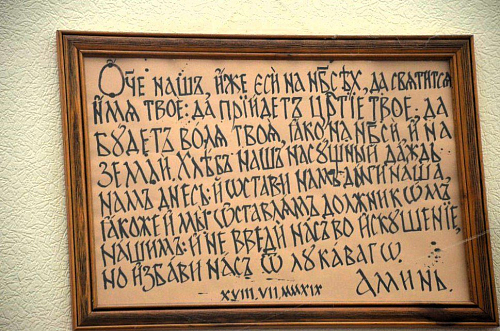 Ѻ҃че нашъ, и҆́же є҆сѝ на нб҃сѣ́хъ, да свѧти́тсѧ
и҆́мѧ твоѐ: да прїи́детъ ца҃рствїе твоѐ: да
бу́детъ во́лѧ твоѧ̀, ꙗ҆́кѡ на нб҃сѝ, и҆ на
землѝ. хлѣ́бъ нашъ насу́щный да́ждь
намъ дне́сь: и҆ ѡ҆ста́ви намъ до́лги на́ша,
ꙗ҆́коже и҆ мы̀ ѡ҆ставлѧ́емъ должникѡ́мъ
на́шимъ: и҆ не введѝ на́съ во и҆скуше́нїе,
но и҆зба́ви на́съ ѿ лука́вагѡ.
Ами́нь.
XVIII.VII.MMXIX